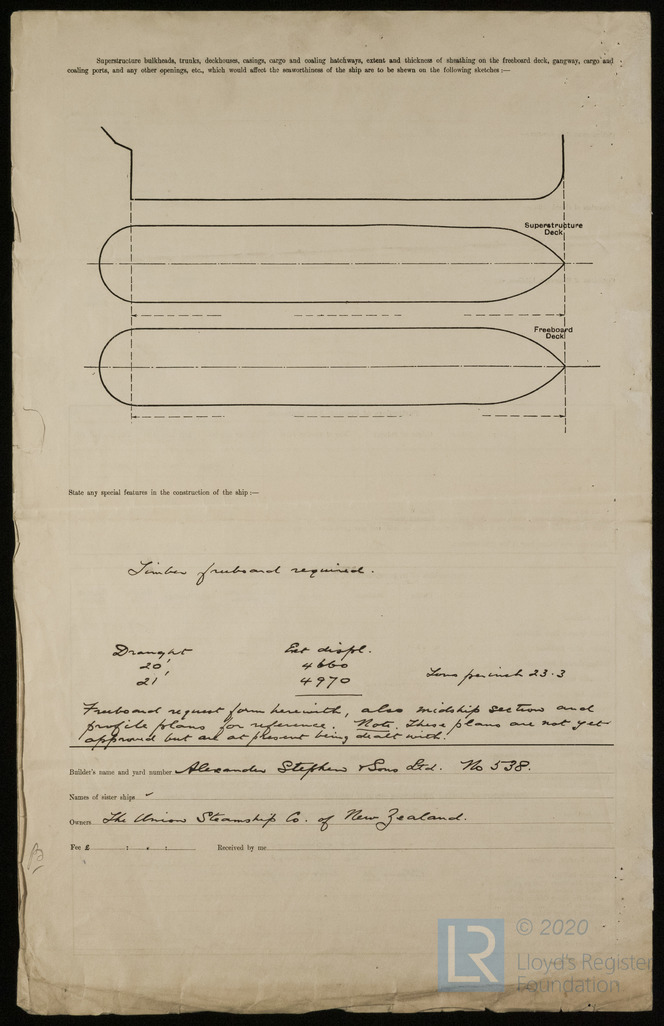 Superstructure bulkheads, trunks, deckhouses, casings, cargo and coaling hatchways, extent and thickness of sheathing on the freeboard deck, gangway, cargo and
coaling ports, and any other openings, etc., which would affect the seaworthiness of the ship are to be shewn on the following sketches :—
Superstructure
Deck
Freeboard
Deck
State any special features in the construction of the ship :—
Timber freeboard required.
Draught Ext displ.
20' 4660
21' 4970 Tons per inch 23.3
Freeboard request form herewith, also midship section and
profile plans for reference. Note. These plans are not yet
approved but are at present being dealt with.
Builder's name and yard number Alexander Stephen & Sons Ltd. No 538.
Names of sister ships
Owners The Union Steamship Co. of New Zealand.
Fee £ : : Received by me
© 2020
LR
Lloyd's Register
Foundation